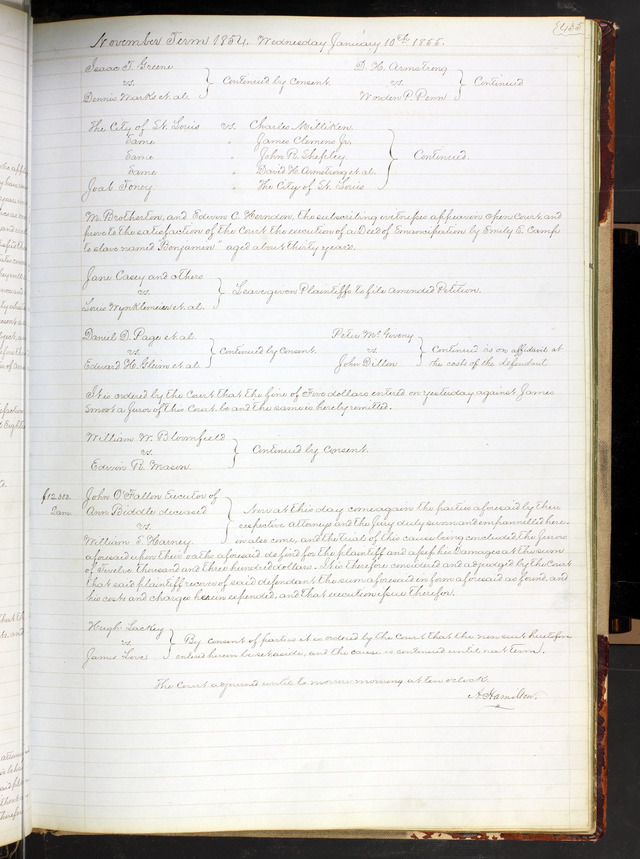 November Term 1854. Wednesday January 10th 1855.
Isaac T. Greene
vs.
Dennis Marks et al.
Continued by Consent.
D. H. Armstrong
vs.
Worden P. Penn
Continued
The City of St. Louis vs. Charles Milliken.
Same " James Clemens Jr.
Same " John R. Shepley
Same " David H. Armstrong et al.
Joab Toney " The City of St. Louis
Continued.
M. Brotherton, and Edwin C. Herndon, the subscribing witnesses appear in open Court, and
prove to the satisfaction of the Court the execution of a Deed of Emancipation by Emily E. Camp
to slave named "Benjamin" aged about thirty years.
Jane Casey and others
vs.
Louis Wynklemeier et al.
Leave given Plaintiffs to file amended Petition.
Daniel D. Page et al.
vs.
Edward H. Gleim et al.
Continued by Consent.
Peter Mc
vs.
John Dillon
Continued is on affidavit at
the costs of the defendant
It is ordered by the Court that the fine of Two dollars entered on yesterday against James
Smoot a Juror of this Court be and the same is hereby remitted.
William W. Bloomfield
vs.
Edwin R. Mason.
Continued by Consent.
$12.300.
Dam.
John O'Fallon Executor of
Ann Biddle deceased
vs.
William S. Harney.
Now at this day come again the parties aforesaid by their
respective attorneys and the Jury duly sworn and empannelled here-
in also come, and the trial of this cause being concluded the Jurors
aforesaid upon their oaths aforesaid do find for the plaintiff and assess his Damages at the sum
of Twelve thousand and three hundred dollars. It is therefore considered and adjudged by the Court
that said plaintiff recover of said defendant the sum aforesaid in form aforesaid as found, and
his costs and charges herein expended, and that execution issue therefor.
Hugh Lackey
vs.
James Love
By consent of parties it is ordered by the Court that the nonsuit heretofore
entered herein be set aside, and the cause is continued until next term.
The Court adjourned until to morrow morning at ten o'clock.
A. Hamilton.